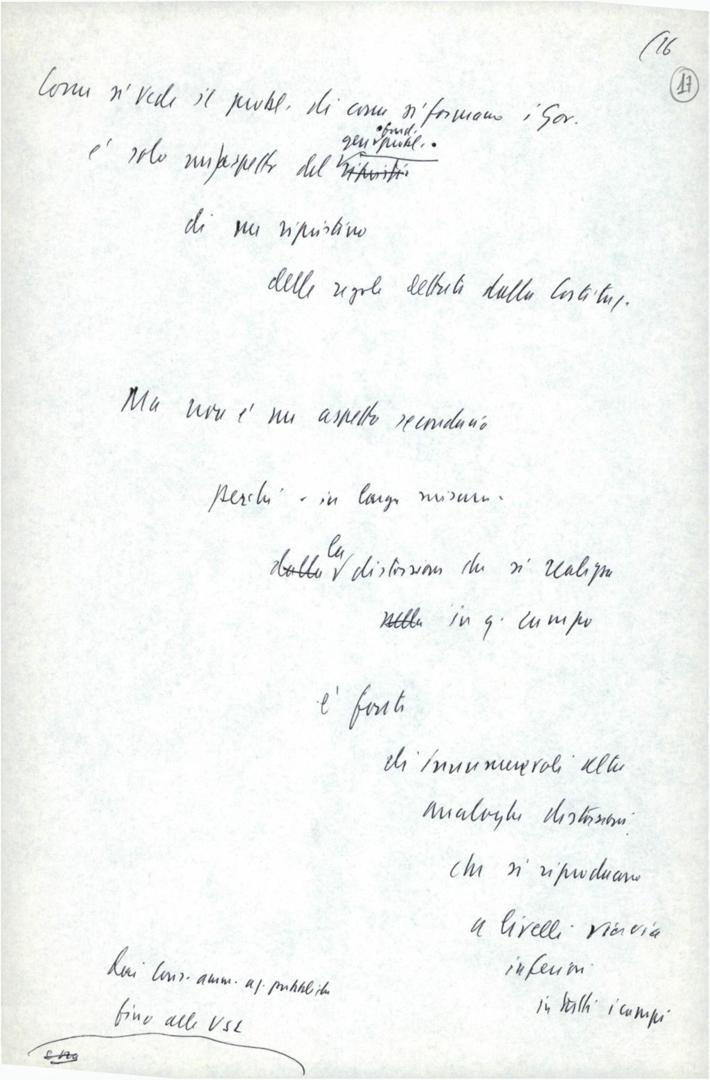 (16
17
Come si vede il probl. di come si formano i Gov.
fond.
gen. probl.
è solo un aspetto del
di un ripristino
delle regole dettate dalla Costituz.
Ma non è un aspetto secondario
perché - in larga misura -
la
dalla distorsione che si realizza
nella in q. campo
è fonte
di innumerevoli altre
analoghe distorsioni
che si riproducono
a livelli via via
inferiori
in tutti i campi
Cons. amm. az. pubbliche
fino alle USL